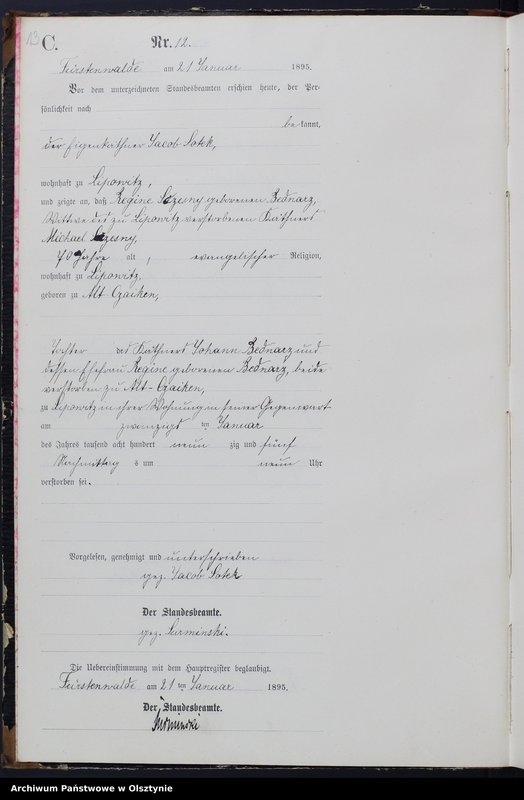 13
C.
Nr. 12.
Fürstenwalde am 21 Januar 1895.
Vor dem unterzeichneten Standesbeamten erschien heute, der Per-
sönlichkeit nach
be kannt,
der Eigenkäthner Jacob Sotek,
wohnhaft zu Lipowitz,
und zeigte an, daß Regine Sczesny geborenen Bednarz,
Wittwe des zu Lipowitz verstorbenen Käthners
Michael Sczesny,
70 Jahre alt, evangelischer Religion,
wohnhaft zu Lipowitz,
geboren zu Alt Czaiken,
Tochter des Käthners Johann Bednarz und
dessen Ehefrau Regine geborenen Bednarz, beide
verstorben zu Alt-Czaiken,
zu Lipowitz in ihrer Wohnung in seiner Gegenwart
am zwanzigsten Januar
des Jahres tausend acht hundert neun zig und fünf
Nachmittag s um neun Uhr
verstorben sei.
Vorgelesen, genehmigt und unterschrieben
gez. Jacob Sotek
Der Standesbeamte.
gez. Surminski.
Die Uebereinstimmung mit dem Hauptregister beglaubigt.
Fürstenwalde am 21 ten Januar 1895.
Der Standesbeamte.
Surminski
Archiwum Państwowe w Olsztynie